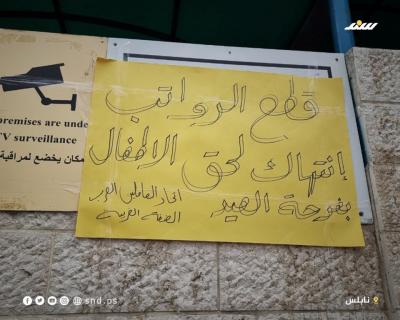 سند
premises are unde
TV surveillance
مكان يخضع لمراقبة
قطع الرواتب
إنتهاك لحق الاطفال
بفرحة العيد
اتحاد العاملين
الضفة الغربية
s.nd.ps
نابلس